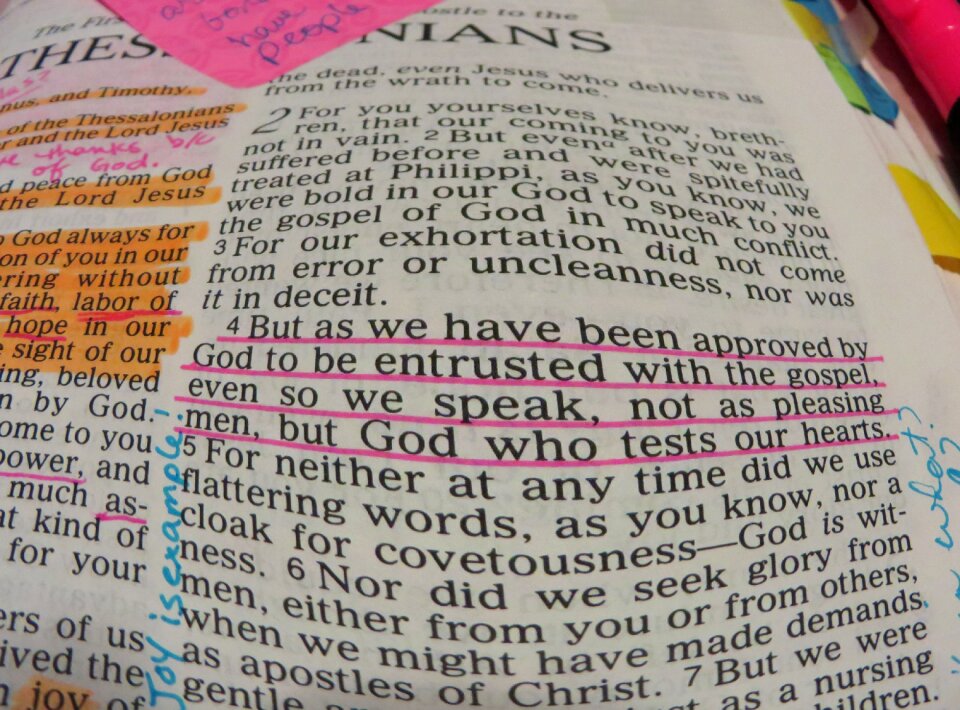 are
bore
have
people
The First
ostle to the
THES NIANS
nus, and Timothy.
of the Thessalonians
r and the Lord Jesus
thanks b/c
of God.
d peace from God
the Lord Jesus
o God always for
on of you in our
ering without
faith, labor of
hope in our
e sight of our
ing, beloved
n by God.
ome to you
power, and
much as-
at kind of
for your
ers of us
ived the
joy of
Joy is example!
he dead, even Jesus who delivers us
from the wrath to come.
2 For you yourselves know, breth-
ren, that our coming to you was
not in vain. 2 But evenᵃ after we had
suffered before and were spitefully
treated at Philippi, as you know, we
were bold in our God to speak to you
the gospel of God in much conflict.
3 For our exhortation did not come
from error or uncleanness, nor was
it in deceit.
4 But as we have been approved by
God to be entrusted with the gospel,
even so we speak, not as pleasing
men, but God who tests our hearts.
5 For neither at any time did we use
flattering words, as you know, nor a
cloak for covetousness—God is wit-
ness. 6 Nor did we seek glory from
men, either from you or from others,
when we might have made demands
as apostles of Christ. 7 But we were
gentle as a nursing
hildren.
what?